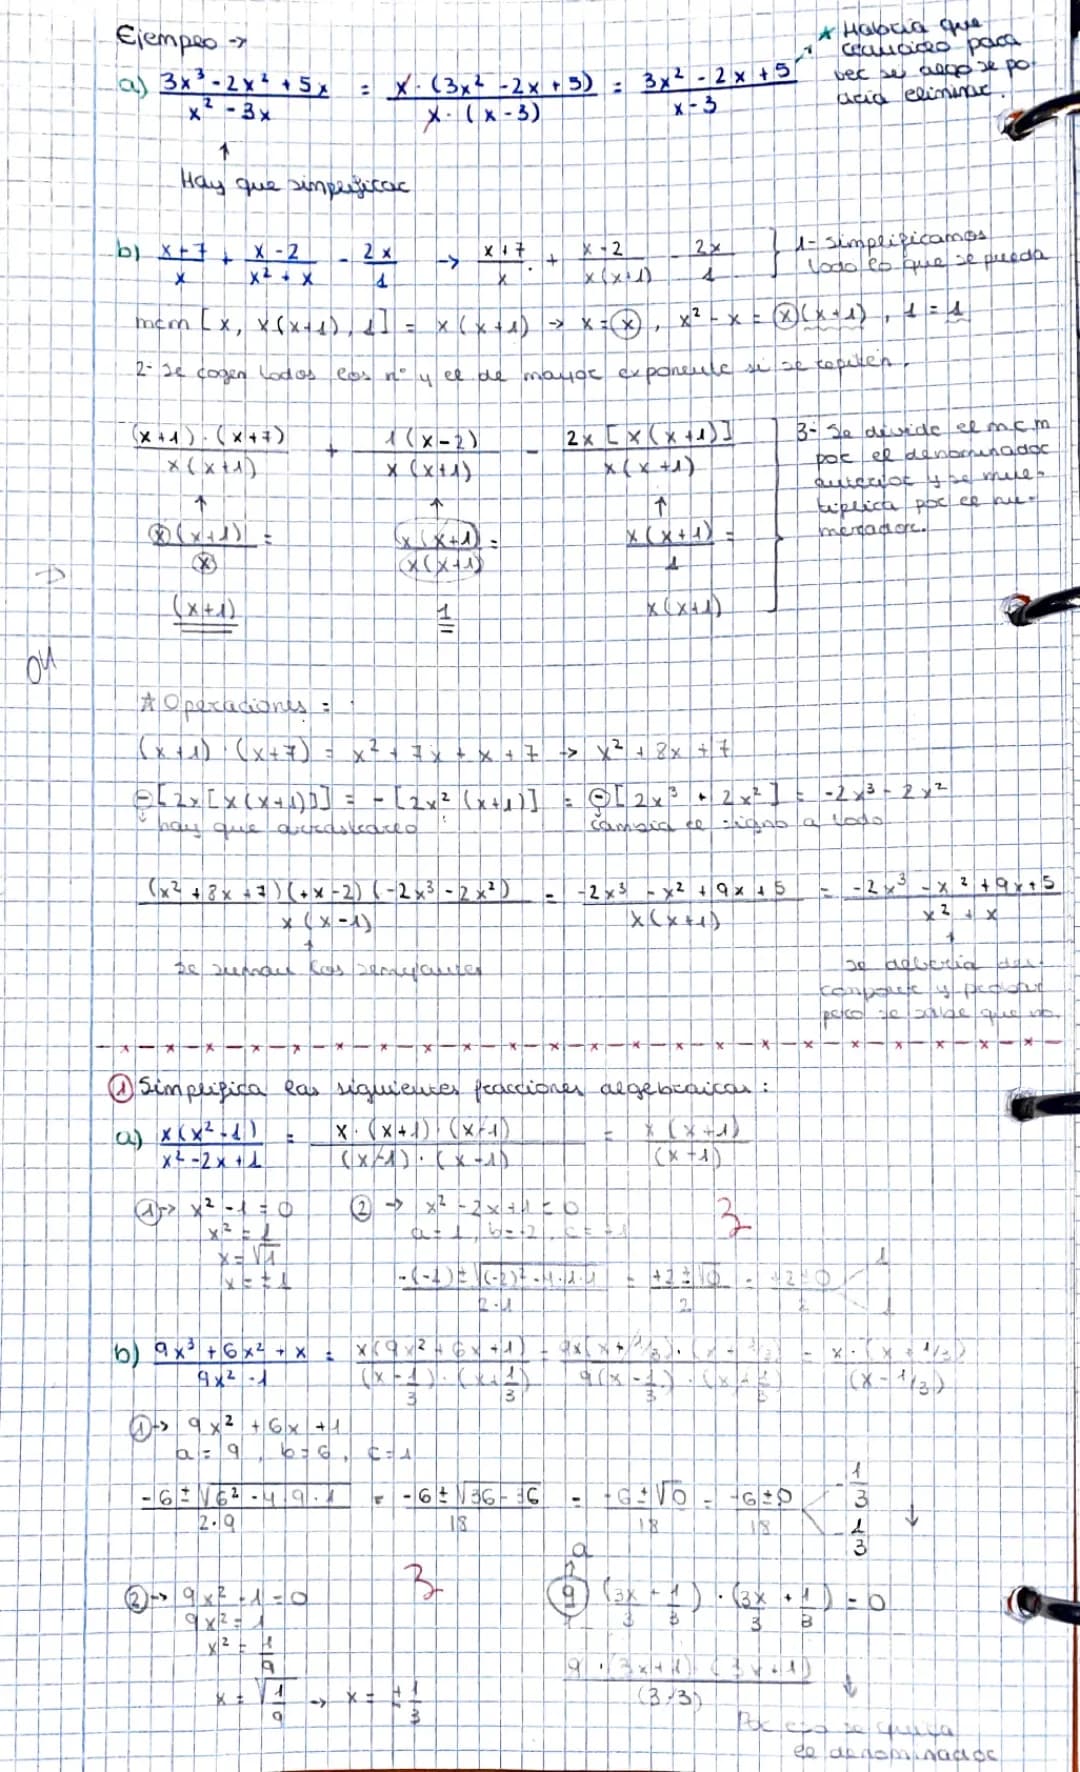 Ejemplo →
* Habría que
factorizarlo para
ver si algo se po-
dría eliminar.
a) (3x³ - 2x² + 5x)/(x² - 3x) = (x · (3x² - 2x + 5))/(x · (x - 3)) = (3x² - 2x + 5)/(x - 3)
↑
Hay que simplificar
b) (x+7)/x + (x-2)/(x² + x) - 2x/1 → (x+7)/x + (x-2)/(x(x+1)) - 2x/1 } 1- simplificamos
todo lo que se pueda
mcm [x, x(x+1), 1] = x(x+1) → x = (x), x² - x = (x)(x+1), 1 = 1
2- se cogen todos los nº y el de mayor exponente si se repiten.
((x+1) · (x+7))/(x(x+1)) + (1(x-2))/(x(x+1)) - (2x[x(x+1)])/(x(x+1))
3- Se divide el m.c.m
por el denominador
anterior y se mul-
tiplica por el nu-
merador.
↑ ↑ ↑
(x(x+1))/x = (x(x+1))/(x(x+1)) = (x(x+1))/1 =
(x+1) 1 x(x+1)
* Operaciones =
(x+1) · (x+7) = x² + 7x + x + 7 → x² + 8x + 7
-[2x[x(x+1)]] = -[2x² (x+1)] = -[2x³ + 2x²] = -2x³ - 2x²
hay que arrastrarlo
cambia el signo a todo
((x² + 8x + 7)(+x-2)(-2x³ - 2x²))/(x(x-1)) = (-2x³ - x² + 9x + 5)/(x(x+1)) = (-2x³ - x² + 9x + 5)/(x² + x)
↑ ↑
se suman los semejantes
se debería
pero se sabe que no.
① Simplifica las siguientes fracciones algebraicas:
a) (x(x² - 1))/(x² - 2x + 1) = (x · (x+1) · (x-1))/((x-1) · (x-1)) = (x(x+1))/(x-1)
①→ x² - 1 = 0 ② → x² - 2x + 1 = 0
x² = 1 a = 1, b = -2, c = +1
x = √1
x = ±1
(-(-2) ± √((-2)² - 4·1·1))/(2·1) = (+2 ± √0)/2 = (+2 ± 0)/2 < 1
1
3
b) (9x³ + 6x² + x)/(9x² - 1) = (x(9x² + 6x + 1))/((x - 1/3) · (x + 1/3)) = (9x(x + 1/3) · (x + 1/3))/(9(x - 1/3) · (x + 1/3)) = (x · (x + 1/3))/(x - 1/3)
①→ 9x² + 6x + 1
a = 9, b = 6, c = 1
(-6 ± √(6² - 4·9·1))/(2·9) = (-6 ± √(36 - 36))/18 = (-6 ± √0)/18 = (-6 ± 0)/18 < -1/3
-1/3
↓
②→ 9x² - 1 = 0
9x² = 1
x² = 1/9
x = √(1/9) → x = ±1/3
3
a
9 (3x/3 - 1/3) · (3x/3 + 1/3) = 0
(9 · (3x+1) (3x+1))/(3·3)
↓
Por eso se quita
el denominador